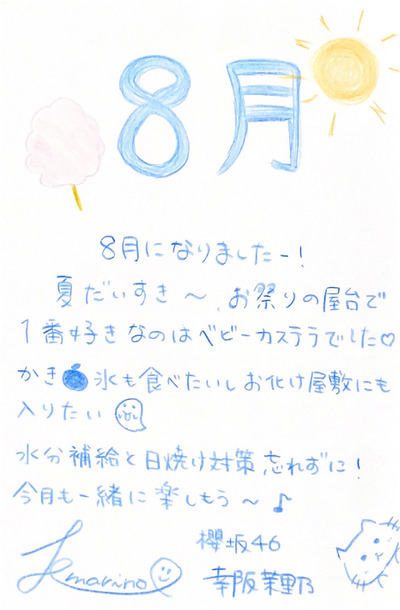 8月
8月になりましたー!
夏だいすき〜 お祭りの屋台で
1番好きなのはベビーカステラでした♡
かき氷も食べたいしお化け屋敷にも
入りたい
水分補給と日焼け対策忘れずに!
今月も一緒に楽しもう〜♪
marino
櫻坂46
幸阪茉里乃